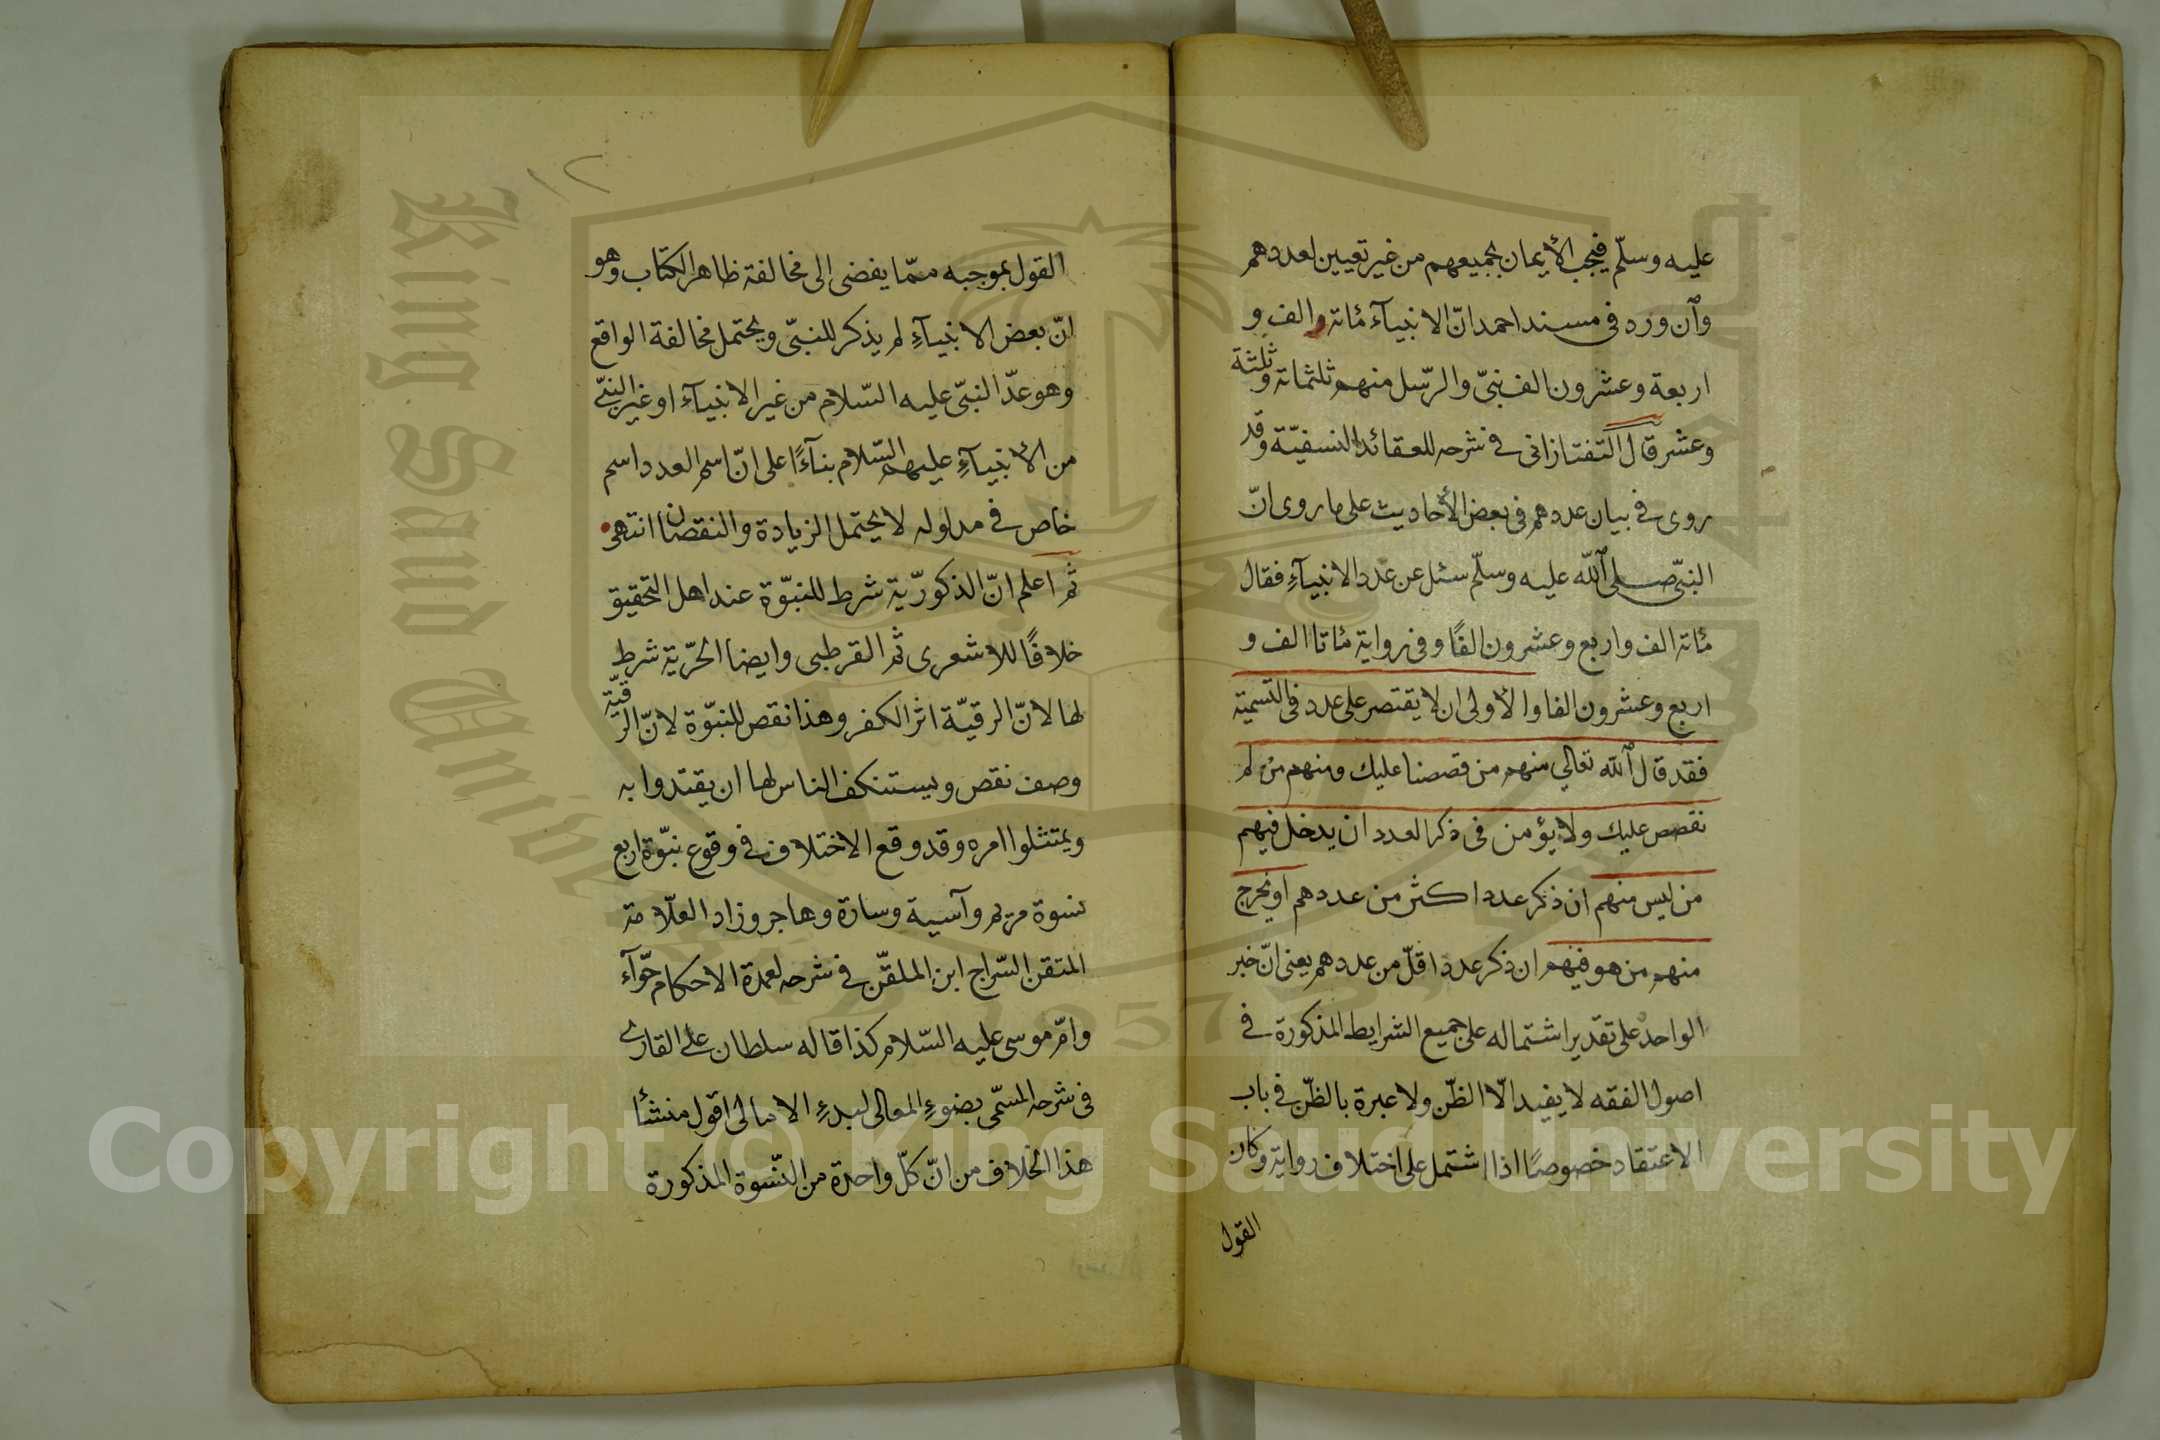 عليه وسلّم فيجب الأيمان بجميعهم من غير تعيين لعددهم
وآن ورد فى مسند احمد انّ الانبيآء مائة والف و
اربعة وعشرون الف نبىّ والرّسل منهم ثلثمائة وثلثة
وعشر قال التفتازانى فى شرحه للعقائد النسفيّة وقد
روى فى بيان عددهم فى بعض الأحاديث على ما روى انّ
النبىّ صلى الله عليه وسلّم سئل عن عدد الانبيآءِ فقال
مائة الف واربع وعشرون الفًا وفى رواية مائتا الف و
اربع وعشرون الفا والأولى ان لا يقتصر على عدد فى التسمية
فقد قال الله تعالي منهم من قصصنا عليك ومنهم من لم
نقصص عليك ولا يؤمن فى ذكر العدد ان يدخل فيهم
من ليس منهم ان ذكر عدد اكثر من عددهم او يخرج
منهم من هو فيهم ان ذكر عدد اقلّ من عددهم يعنى انّ خبر
الواحد على تقدير اشتماله على جميع الشرايط المذكورة فى
اصول الفقه لا يفيد الّا الظّن ولا عبرة بالظّن فى باب
الاعتقاد خصوصًا اذا اشتمل على اختلاف رواية وكان
القول
٢١
القول بموجبه ممّا يفضى الى مخالفة ظاهر الكتاب وهو
انّ بعض الانبيآءِ لم يذكر للنبىّ ويحتمل مخالفة الواقع
وهو عدّ النبىّ عليه السّلام من غير الانبيآء او غير النبىّ
من الأنبيآءِ عليهم السّلام بنآءًا على انّ اسم العدد اسم
خاص فى مدلوله لا يحتمل الزيادة والنقصان انتهى
ثمّ اعلم انّ الذكورّية شرط للنبوّة عند اهل التحقيق
خلافًا للاشعرى ثم القرطبى وايضا الحرّية شرط
لها لانّ الرقيّة اثر الكفر وهذا نقص للنبوّة لانّ الرقيّة
وصف نقص ويستنكف الناس لها ان يقتدوا به
ويمتثلوا امره وقد وقع الاختلاف فى وقوع نبوّة اربع
نسوة مريم وآسية وسارة وهاجر وزاد العلّامة
المتقن السّراج ابن الملقّن فى شرحه لعمدة الاحكام حوّآء
وامّ موسى عليه السّلام كذا قاله سلطان على القارى
فى شرحه المسمّى بضوءِ المعالى لبدءِ الامالى اقول منشئا
هذا الخلاف من انّ كلّ واحدة من النّسوة المذكورة
King Saud University
1957
Copyright © King Saud University